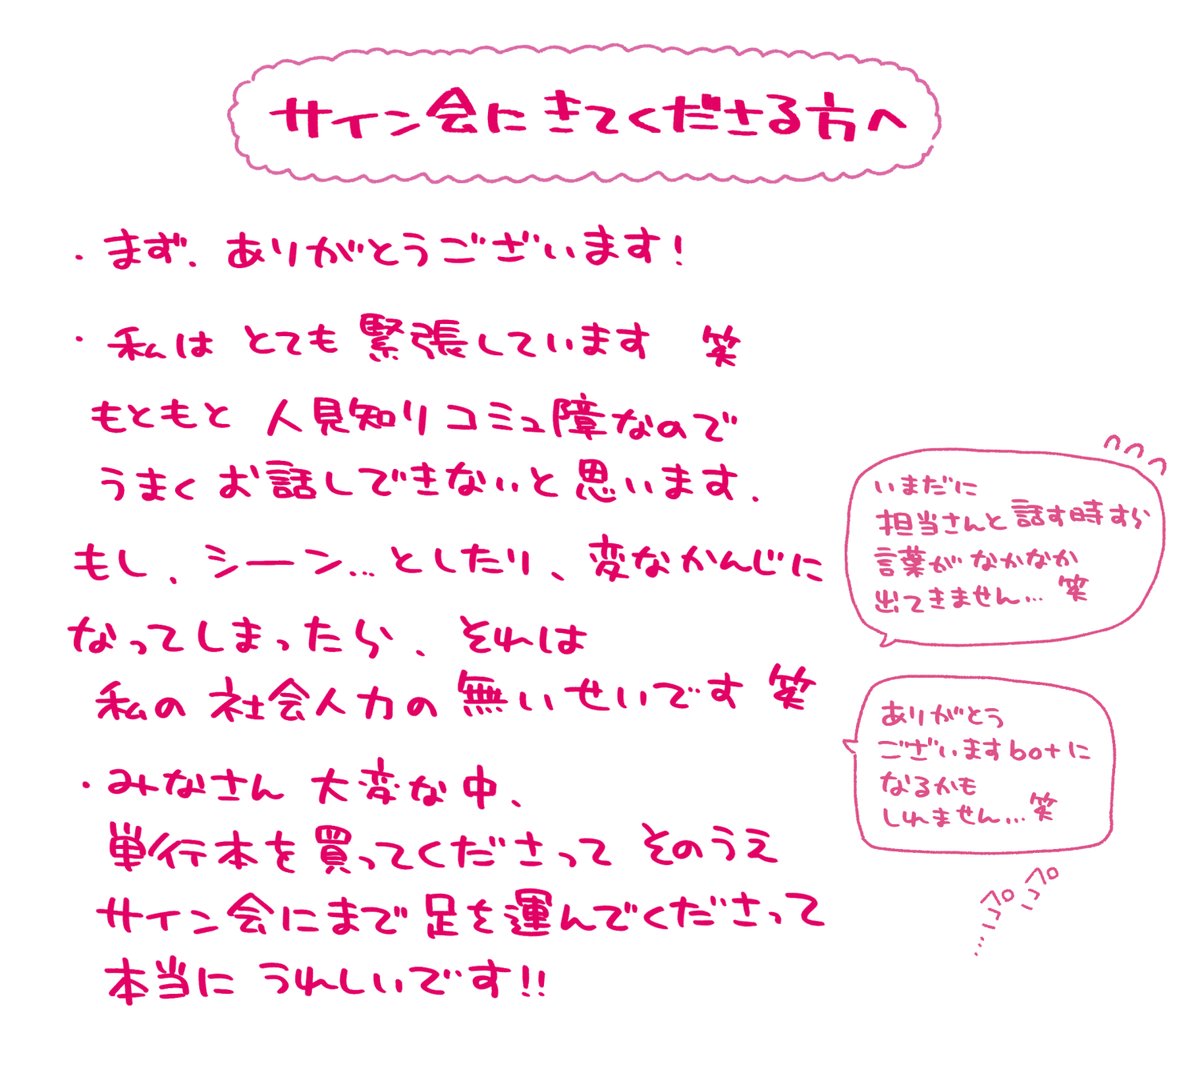 サイン会にきてくださる方へ
・まず、ありがとうございます!
・私は とても緊張しています 笑
もともと 人見知りコミュ障なので
うまくお話しできないと思います.
もし、シーン...としたり、変なかんじに
なってしまったら、それは
私の社会人力の無いせいです 笑
いまだに
担当さんと話す時すら
言葉がなかなか
出てきません... 笑
ありがとう
ございますbotに
なるかも
しれません... 笑
ペコペコ...
・みなさん 大変な中、
単行本を買ってくださって そのうえ
サイン会にまで足を運んでくださって
本当に うれしいです!!